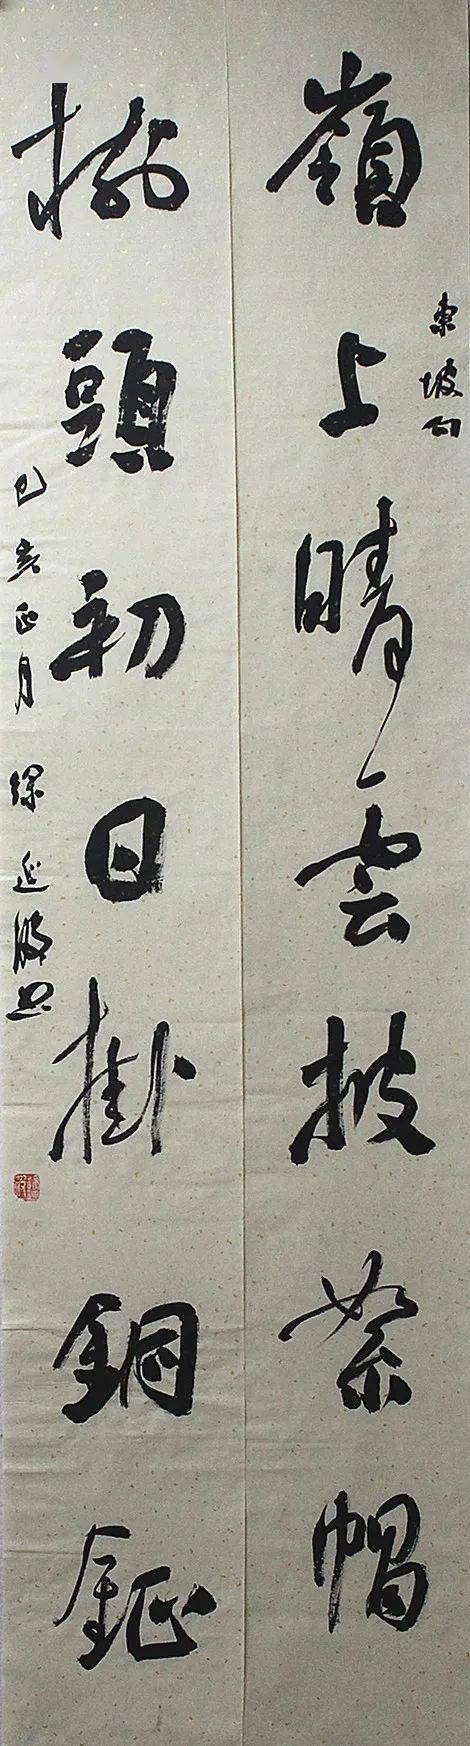 東坡句
嶺上晴雲披絮帽
樹頭初日掛銅鉦
己亥正月 延波書